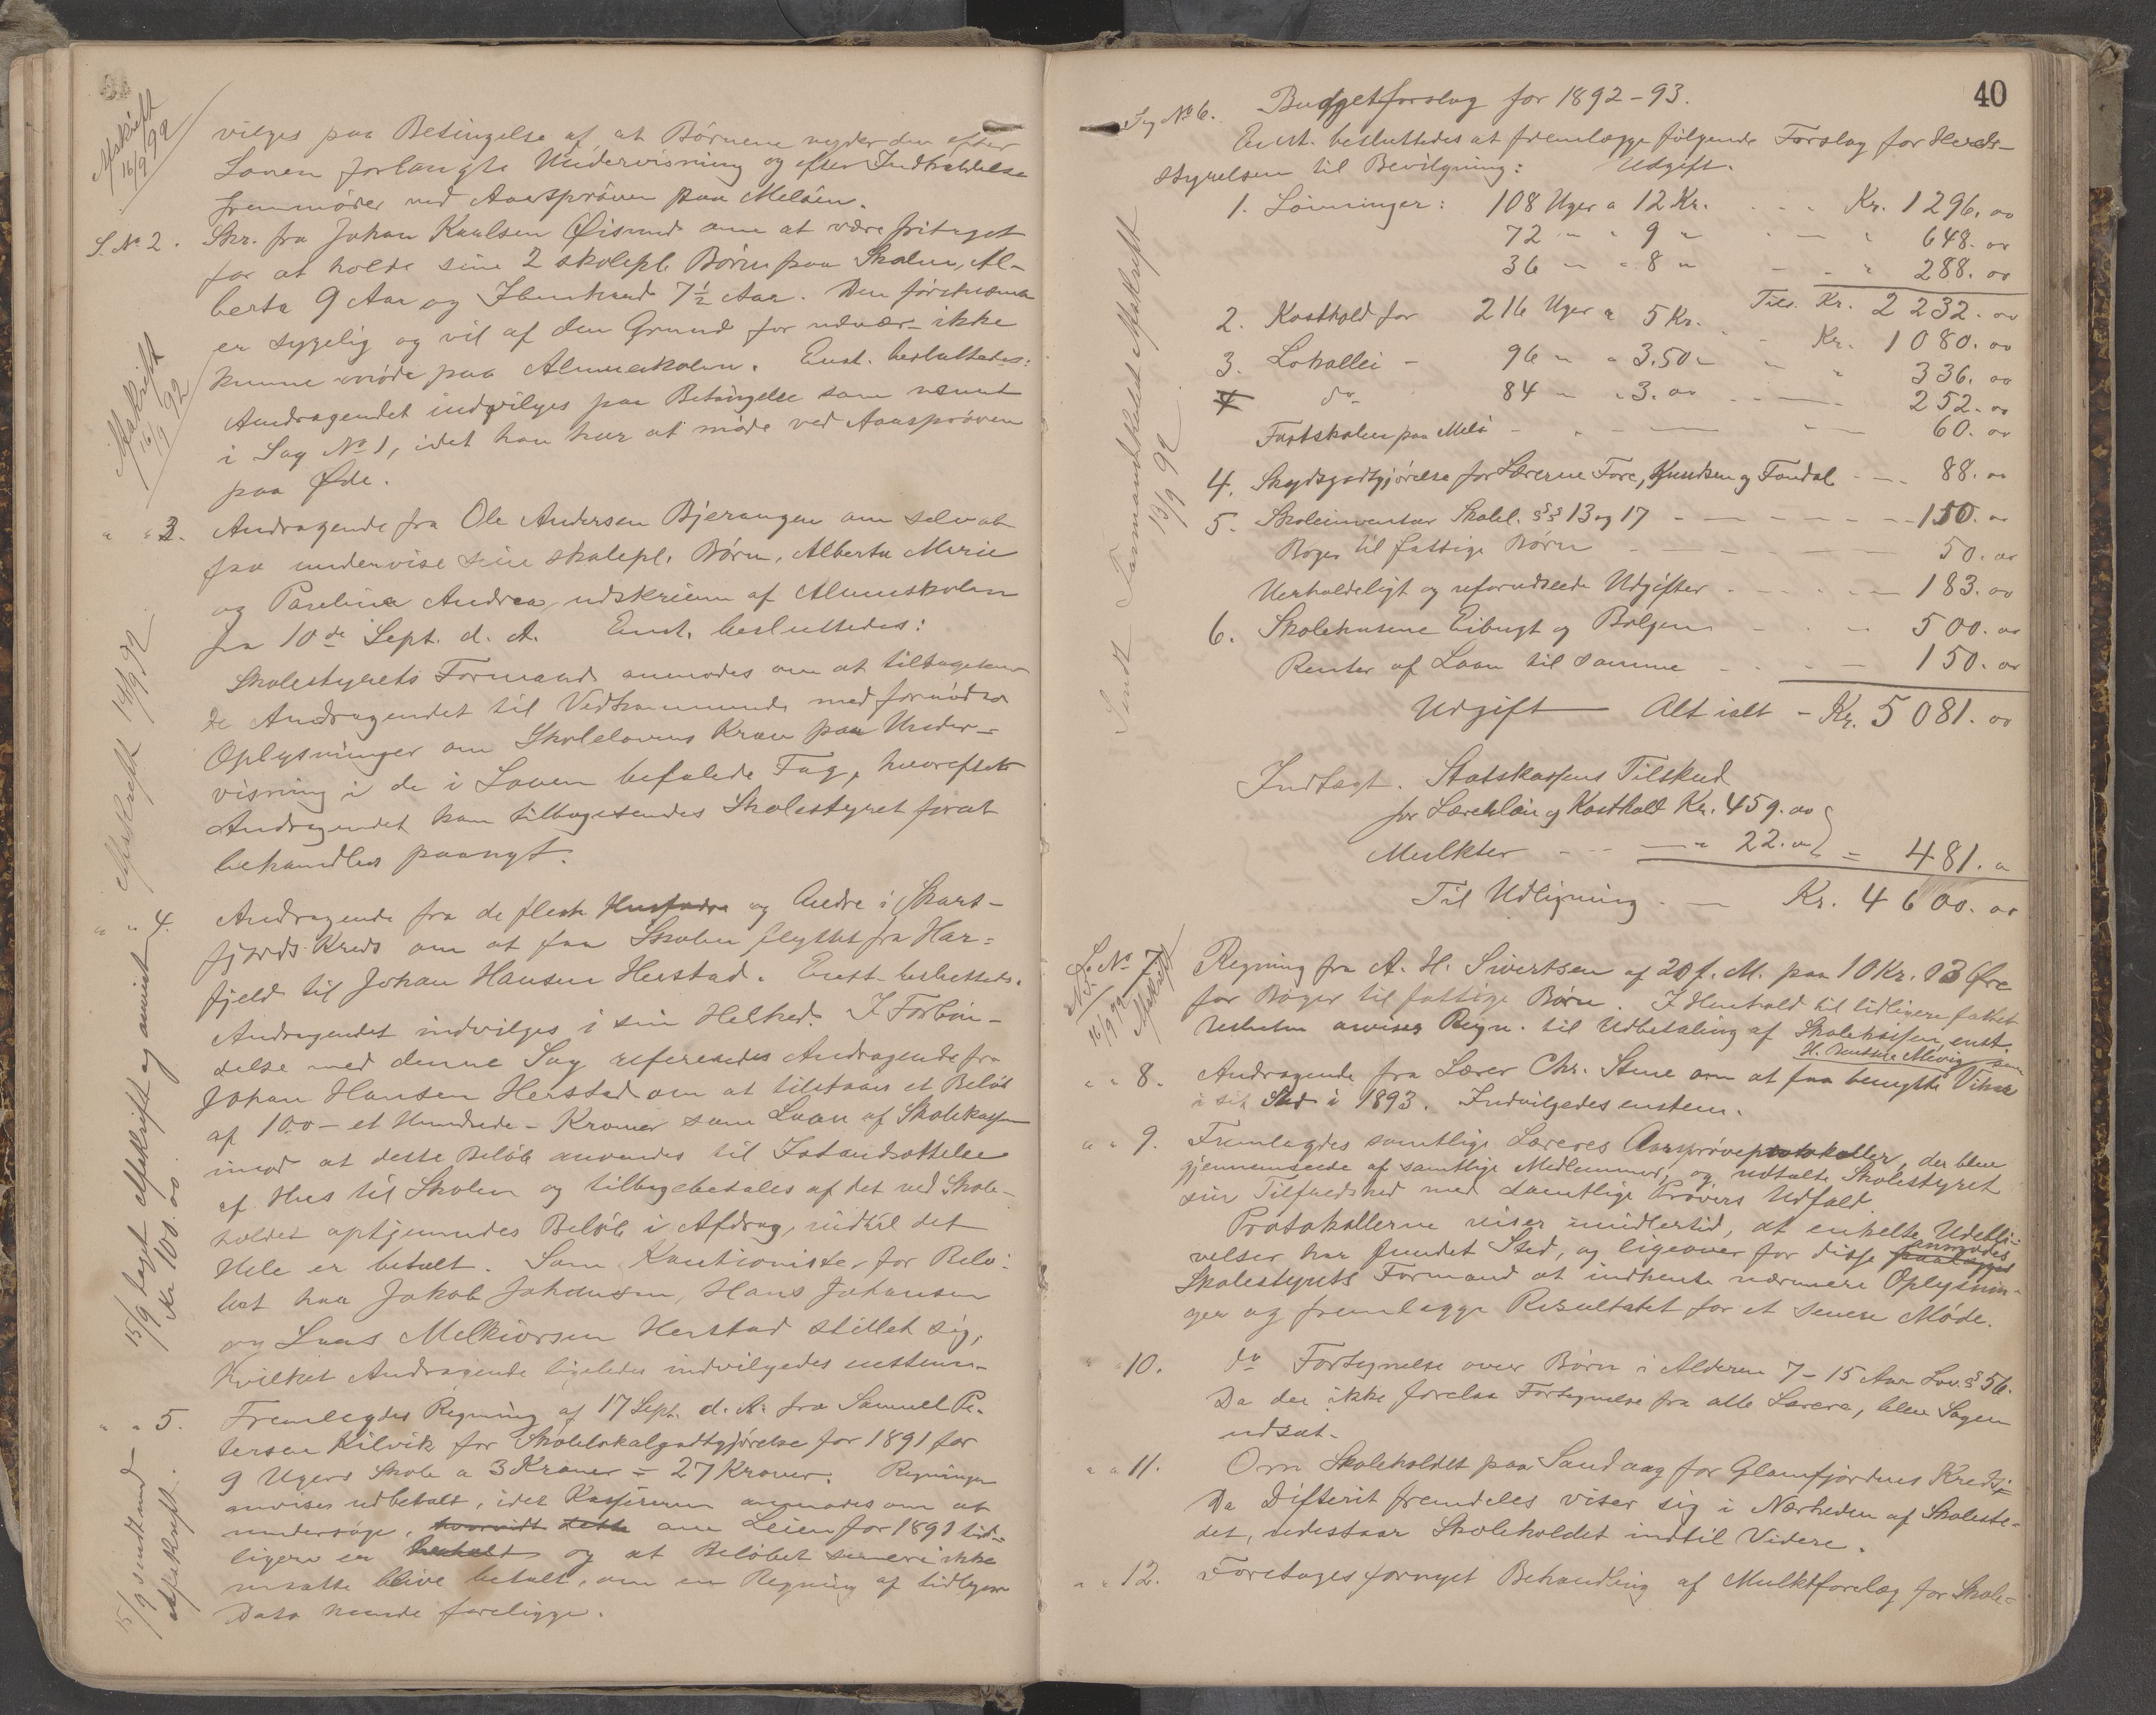 Afskrift
16/9 92
vilges paa Betingelse af, at Børnene nyder den efter
Loven forlangte Undervisning og efter Indkaldelse
fremmøder ved Aarsprøven paa Meløen.
S. No 2. Skr. fra Johan Kaalsen Øisund om at være fritaget
for at holde sine 2 skolepl. Børn paa Skolen, Al-
berta 9 Aar og 7½ Aar. Den førstnævnte
er sygelig og vil af den Grund for nærv. ikke
kunne møde paa Almueskolen. Enst. besluttedes:
Afskrift
16/9 92
Andragendet indvilges paa Betingelse som nævnt
i Sag No 1, idet han har at møde ved Aarsprøven
paa Øde.
" " 3. Andragende fra Ole Andersen Bjerangen om selv at
faa undervise sine skolepl. Børn, Alberta Marie
og Paulina Andrea, udskreven af Almueskolen
fra 10de Sept. d. A. Enst. besluttedes:
Afskrift 14/9 92
Skolestyrets Formand anmodes om at tilbagesen-
de Andragendet til Vedkommende med fornødne
Oplysninger om Skolelovens Krav paa Under-
visning i de i Loven befalede Fag, hvorefter
Andragendet kan tilbagesendes Skolestyret forat
behandles paanyt.
" " 4. Andragende fra de fleste Husfædre og Andre i Skars-
fjords Kreds om at faa Skolen flyttet fra Har-
fjeld til Johan Hansen Herstad. Enst. besluttedes:
Andragendet indvilges i sin Helhed. I Forbin-
delse med denne Sag refereredes Andragende fra
Johan Hansen Herstad om at tilstaaes et Beløb
af 100 – et Hundrede – Kroner som Laan af Skolekassen
imod at dette Beløb anvendes til Istandsættelse
af Hus til Skolen og tilbagebetales af det ved Skole-
holdet optjenendes Beløb i Afdrag, indtil det
Hele er betalt. Som Kautionister for Belø-
bet har Jakob Johansen, Hans Johansen
og Laas Melkiorsen Herstad stillet sig,
hvilket Andragende ligeledes indvilgedes enstem-
15/9 taget Afskrift og anvist
Kr 100.00.
" " 5. Fremlagdes Regning af 17 Sept. d. A. fra Samuel Pe-
tersen Kilvik for Skolelokalgodtgjørelse for 1891 for
9 Ugers Skole a 3 Kroner = 27 Kroner. Regningen
anvises udbetalt, idet Kassereren anmodes om at
undersøge, hvorvidt dette om Leien for 1891 tid-
ligere er betalt og at Beløbet i ikke
maatte blive betalt, om en Regning af tidligere
Dato maatte foreligge.
15/9 sendt
Afskrift.
40
Sag No 6. Budgetforslag for 1892–93.
Enst. besluttedes at fremlægge følgende Forslag for Herds-
styrelsen til Bevilgning: Udgift.
1. Lønninger: 108 Uger a 12 Kr. - - - Kr. 1296.00
72 " " 9 " - — " 648.00
36 " " 8 " - - " 288.00
Tils. Kr. 2232.00
2. Kosthold for 216 Uger a 5 Kr. - Kr. 1080.00
3. Lokalleie - 96 " a 3.50 " " " 336.00
4 do 84 " " 3.00 - - — 252.00
Fastskolen paa Melø - - — — 60.00
4. Skydsgodtgjørelse for Lærerne Fore, Knudsen og Fondal - - — 88.00
5. Skoleinventar Skolel. §§ 13 og 17 - — - — — 150.00
Bøger til fattige Børn - - — - — — 50.00
Uerholdeligt og uforudseede Udgifter - - — - — 183.00
6. Skolehusene Eibugt og Bolgen - - — 500.00
Renter af Laan til samme - - - — 150.00
Udgift — Alt ialt - Kr. 5081.00
Sendt Formandskabet Afskrift
19/9 92
Indtægt. Statskassens Tilskud
for Lærerløn og Kosthold Kr. 459.00
Mulkter - - — " 22.00 = 481.00
Til Udligning - — Kr. 4600.00
S. No 7
16/9 92 Afskrift
Regning fra A. H. Sivertsen af 20 f. M. paa 10 Kr. 03 Øre
for Bøger til fattige Børn. I Henhold til tidligere fattet
Beslutn. anvises Regn. til Udbetaling af Skolekassen, enst.
" " 8. Andragende fra Lærer Chr. Stene om at faa benytte H. Bentsen Mevig som Vikar
i sit Sted i 1893. Indvilgedes enstem.
" " 9. Fremlagdes samtlige Læreres Aarsprøveprotokoller, der blev
gjennemseede af samtlige Medlemmer, og udtalte Skolestyret
sin Tilfredshed med samtlige Prøvers Udfald.
Protokollerne viser imidlertid, at enkelte Udebli-
velser har fundet Sted, og ligeover for disse paalægges anmodes
Skolestyrets Formand at indhente nærmere Oplysnin-
ger og fremlægge Resultatet for et senere Møde.
" " 10. do Fortegnelse over Børn i Alderen 7–15 Aar Lov. § 56.
Da der ikke forelaa Fortegnelse fra alle Lærere, blev Sagen
udsat.
" " 11. Om Skoleholdet paa Sandaag for Glomfjordens Kreds:
Da Difterit fremdeles viser sig i Nærheden af Skoleste-
det, udestaar Skoleholdet indtil Videre.
" " 12. Foretoges fornyet Behandling af Mulktforelæg for Skole-